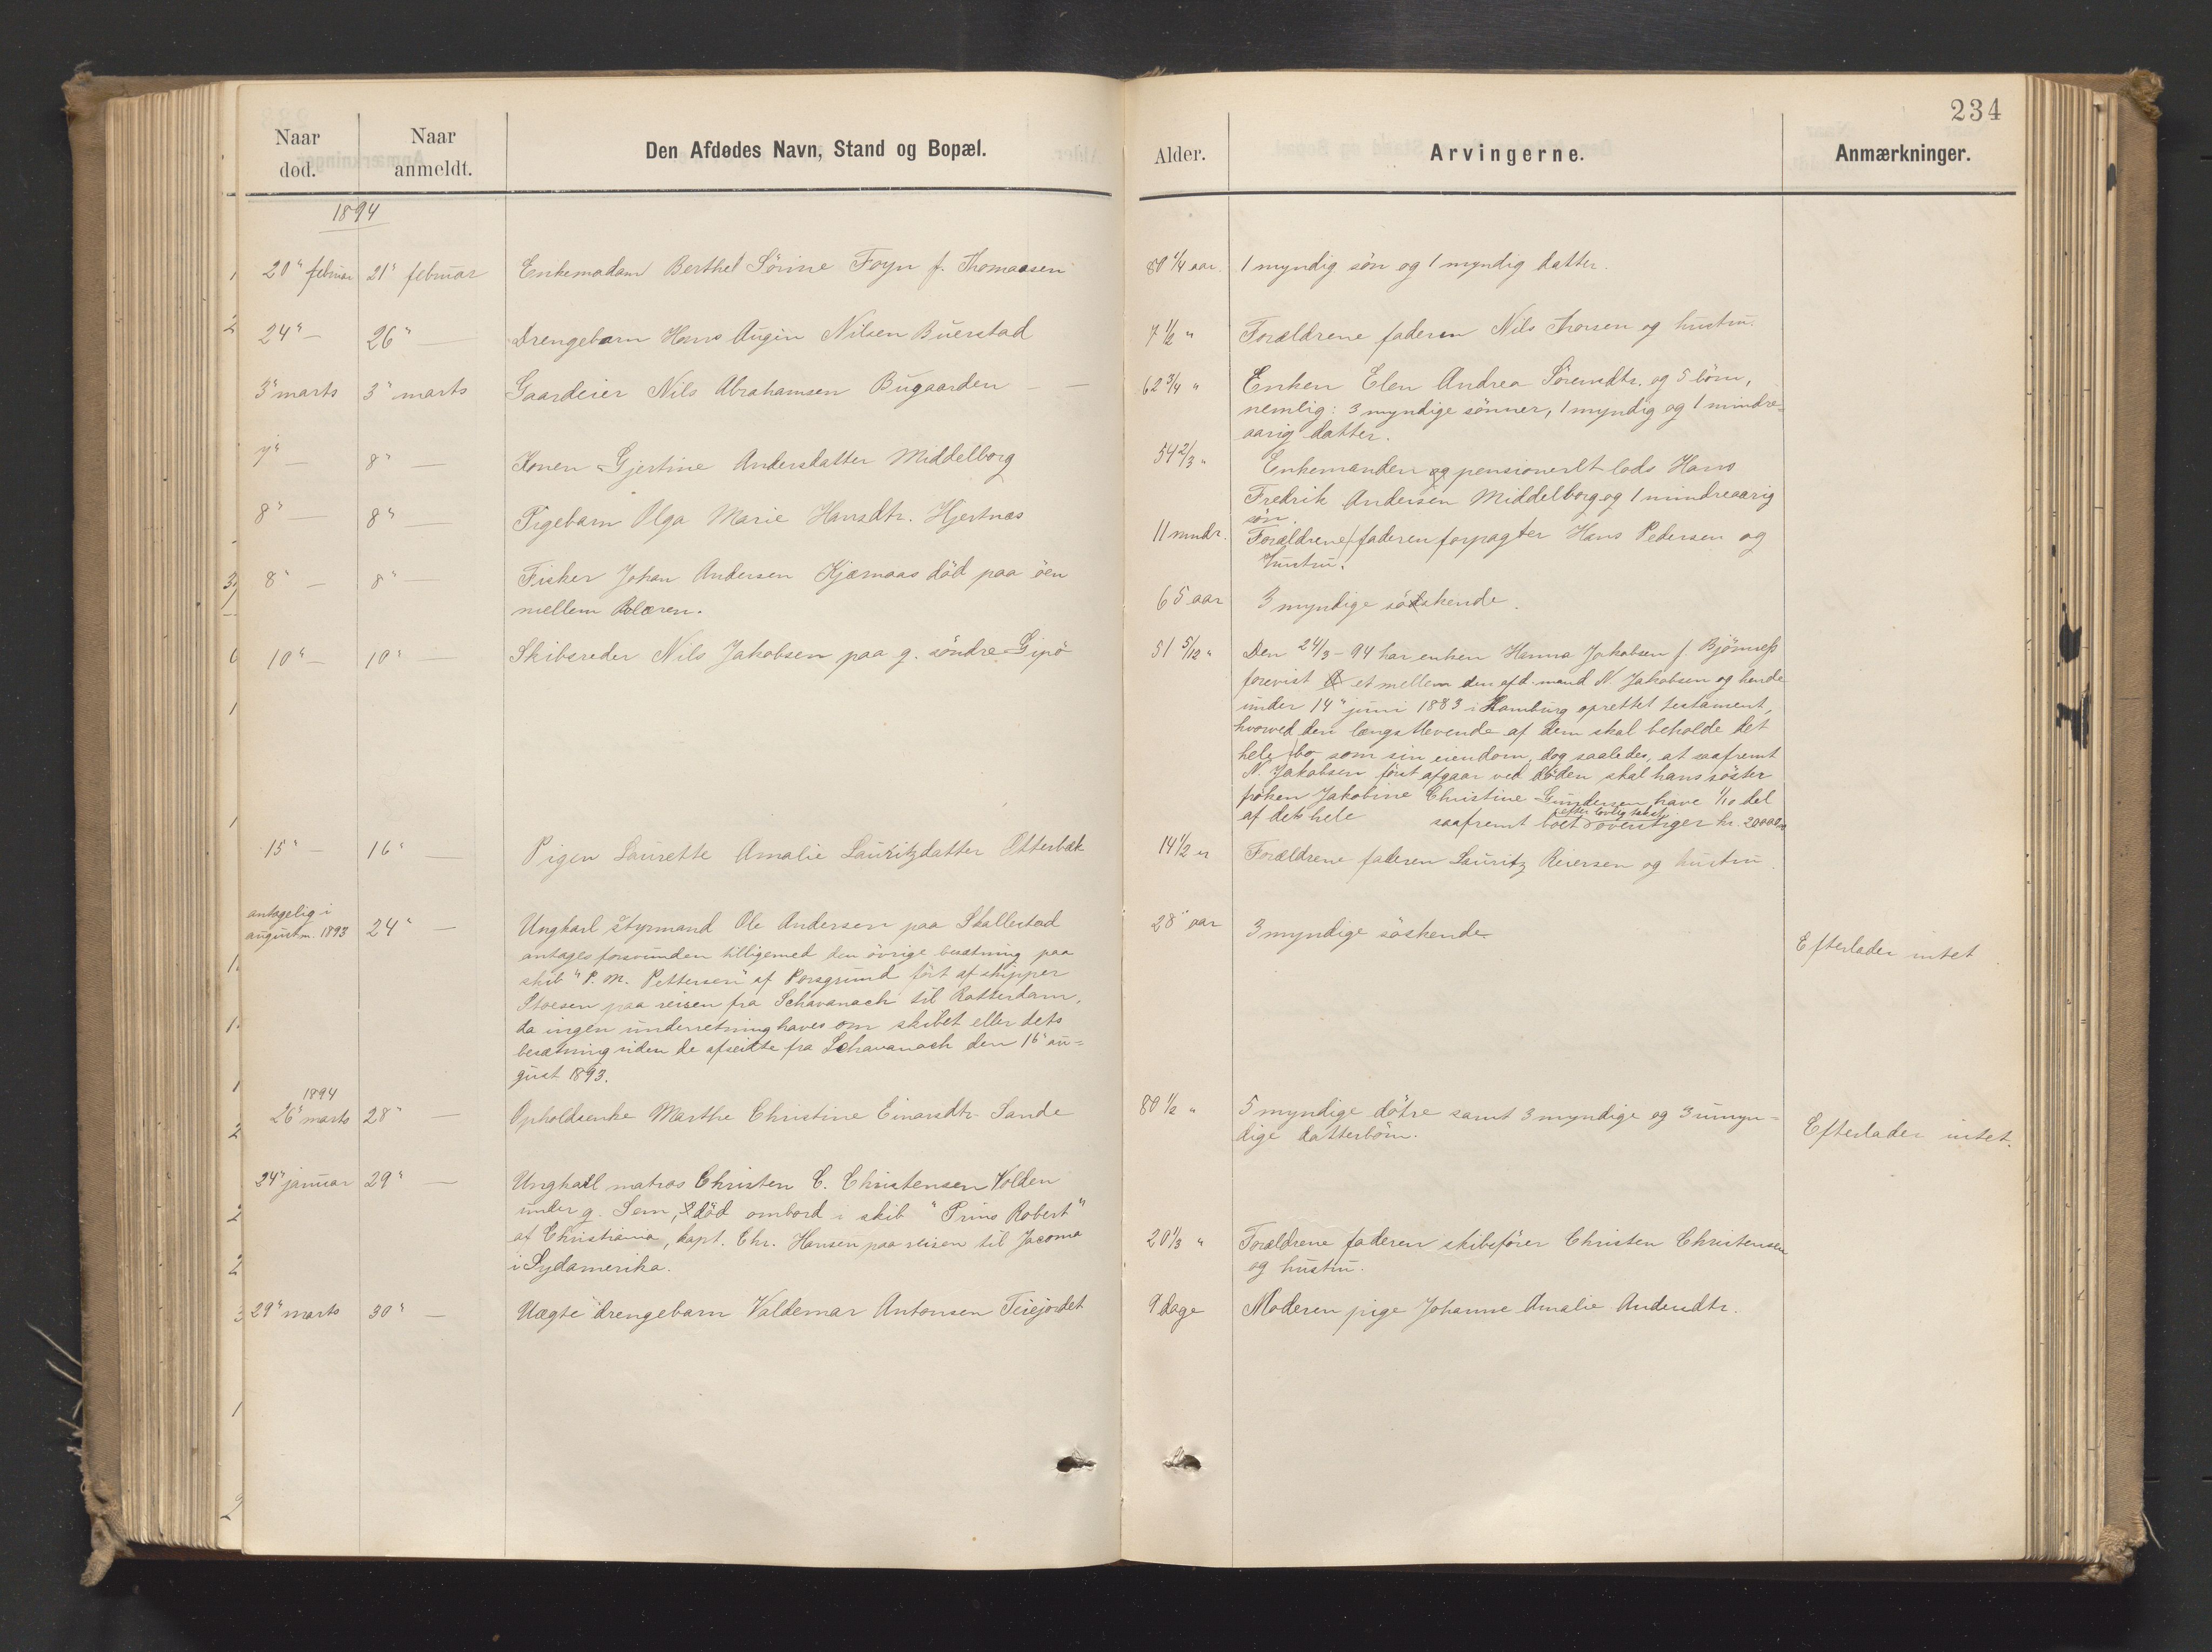 234
Naar død. Naar anmeldt. Den Afdødes Navn, Stand og Bopæl. Alder. Arvingerne. Anmærkninger.
1894
20" februar 21" februar Enkemadam Berthe Sörine Foyn f. Thomassen 80 1/4 aar. 1 myndig sön og 1 myndig datter.
24" — 26" — Drengebarn Hans Augin Nilsen Buerstad 7 1/2 " Forældrene faderen Nils Thorsen og hustru.
3" marts 3" marts Gaardeier Nils Abrahamsen Bugaarden — — 62 3/4 " Enken Elen Andrea Sörensdtr. og 5 börn,
nemlig: 3 myndige sönner, 1 myndig og 1 mindre=
aarig datter.
7" — 8" — Konen Gjertine Andersdatter Middelborg 54 2/3 " Enkemanden pensionerlt lods Hans
Fredrik Andersen Middelborg og 1 mindreaarig
sön.
8" — 8" — Pigebarn Olga Marie Hansdtr. Hjertnæs 11 mndr. Forældrene faderen forpagter Hans Pedersen og
Hustru.
8" — 8" — Fisker Johan Andersen Kjærnaas död paa öen
mellem Bolæren.
65 aar 3 myndige söskende.
10" — 10" — Skibsreder Nils Jakobsen paa g. söndre Gipö 51 5/12 " Den 24/3 - 94 har enken Hanna Jakobsen f. Bjönness
forevist et mellem den afd. mand N. Jakobsen og hende
under 14" juni 1883 i Hamburg oprettet testament,
hvorved den længstlevende af dem skal beholde det
hele bo som sin eiendom, dog saaledes, at saafremt
N. Jakobsen först afgaar ved döden skal hans söster
fröken Jakobine Christine Gundersen have 1/10 del
af det hele saafremt boet efter lovlig takst overstiger kr. 20000
15" — 16" — Pigen Laurette Amalie Lauritzdatter Otterbæk 14 1/2 " Forældrene faderen Lauritz Reiersen og hustru.
antagelig i
august m. 1893 24" — Ungkarl styrmand Ole Andersen paa Skallestad 28 aar 3 myndige söskende. Efterlader intet
antages forsvunden tilligemed den övrige besætning paa
skib "P. M. Pettersen" af Porsgrund fört af skipper
Stoesen paa reisen fra Schavanach til Rotterdam,
da ingen underretning haves om skibet eller dets
besætning siden de afseilte fra Schavanach den 16" au=
gust 1893.
1894
26" marts 28" — Opholdsenke Marthe Christine Einarsdtr. Sande 80 1/2 " 5 myndige dötre samt 3 myndige og 3 umyn=
dige datterbörn. Efterlader intet.
24" januar 29" — Ungkarl matros Christen C. Christensen Volden
under g. Sem, död ombord i skib "Prins Robert"
af Christiania, kapt. Chr. Hansen paa reisen til Jacoma
i Sydamerika.
20 1/3 " Forældrene faderen skibsförer Christen Christensen
og hustru.
29" marts 30" — Uægte drengebarn Valdemar Antonsen Teiejordet 9 dage Moderen pige Johanne Amalie Andersdtr.